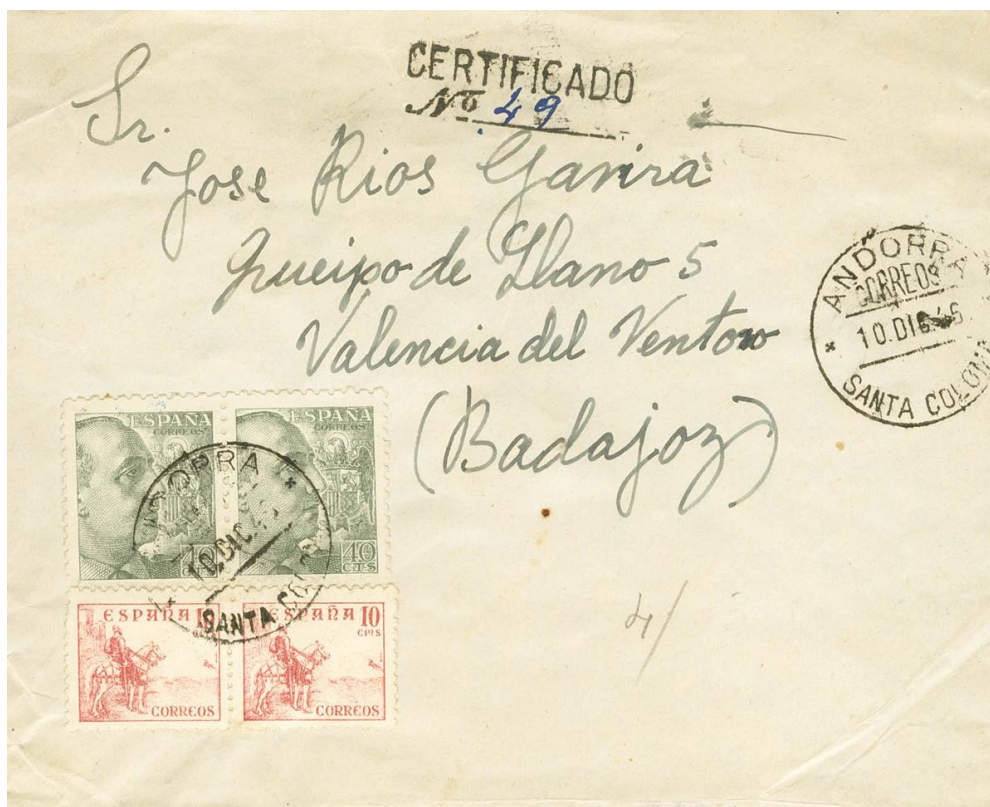 CERTIFICADO
Nº 49
Sr.
Jose Rios Gavira
Queipo de Llano 5
Valencia del Ventoso
(Badajoz)
ANDORRA
CORREOS
10.DIC.46
SANTA COLOMA
ESPAÑA
CORREOS
40
ESPAÑA
CORREOS
40
CTS
ANDORRA
10.DIC.46
SANTA COLO
ESPAÑA 1
CORREOS
ESPAÑA 10
CTS
CORREOS
4/